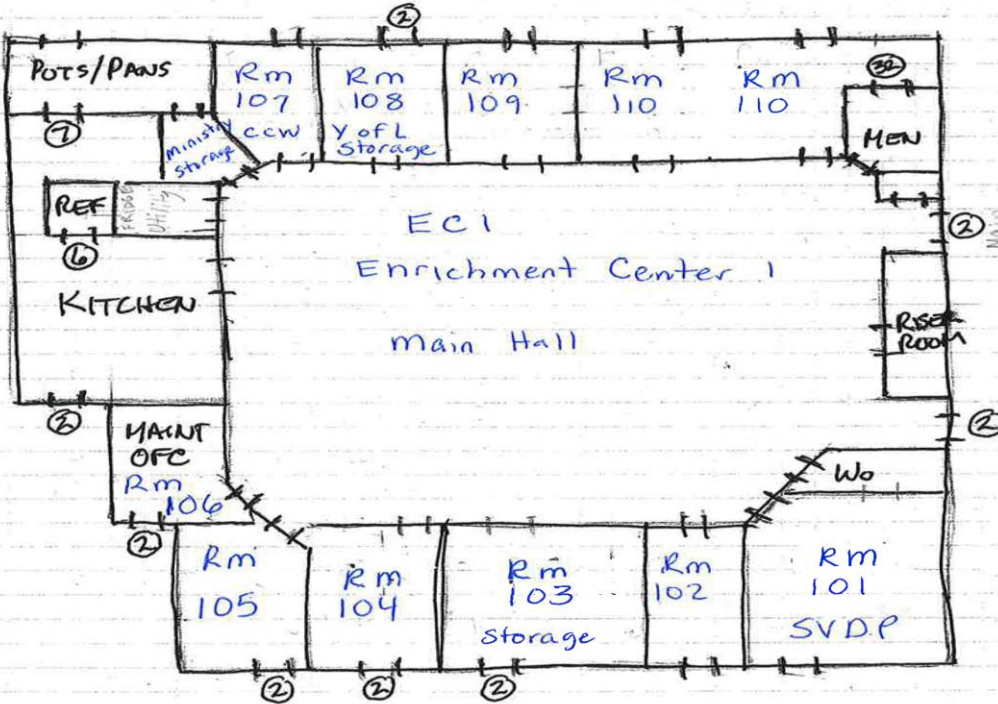 2
POTS/PANS
Rm
107
CCW
Rm
108
Y of L
Storage
Rm
109
Rm
110
Rm
110
32
MEN
7
Ministry
Storage
REF
FRIDGE
Utility
6
KITCHEN
EC1
Enrichment Center 1
Main Hall
2
RISER
ROOM
2
2
MAINT
OFC
Rm
106
2
Wo
Rm
105
Rm
104
Rm
103
Storage
Rm
102
Rm
101
SVDP
2
2
2